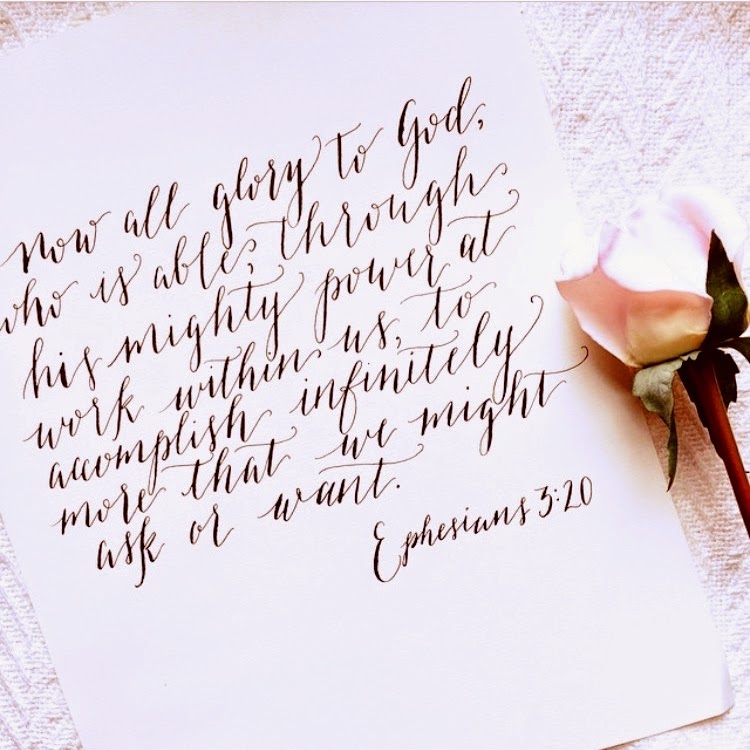 now all glory to God,
who is able, through
his mighty power at
work within us, to
accomplish infinitely
more that we might
ask or want.
Ephesians 3:20